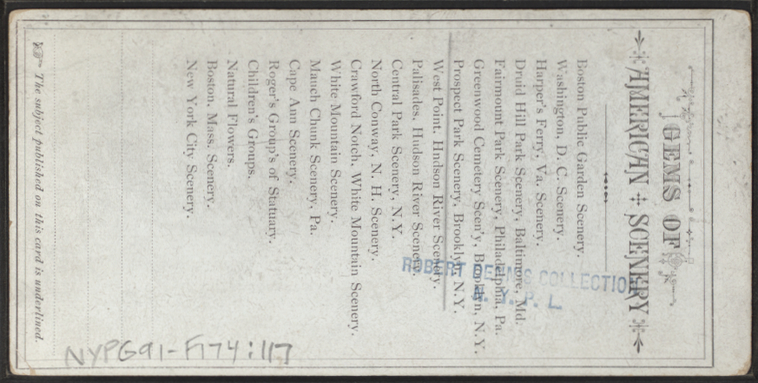 GEMS OF
AMERICAN SCENERY
Boston Public Garden Scenery.
Washington, D. C. Scenery.
Harper's Ferry, Va. Scenery.
Druid Hill Park Scenery, Baltimore, Md.
Fairmount Park Scenery, Philadelphia, Pa.
Greenwood Cemetery Scen'y, Brooklyn, N.Y.
Prospect Park Scenery, Brooklyn N.Y.
West Point, Hudson River Scenery.
Palisades, Hudson River Scenery.
Central Park Scenery, N.Y.
North Conway, N. H. Scenery.
Crawford Notch, White Mountain Scenery.
White Mountain Scenery.
Mauch Chunk Scenery, Pa.
Cape Ann Scenery.
Roger's Group's of Statuary.
Children's Groups.
Natural Flowers.
Boston, Mass. Scenery.
New York City Scenery.
The subject published on this card is underlined.
ROBERT DENNIS COLLECTION
N. Y. P. L.
NYPG91-F174:117